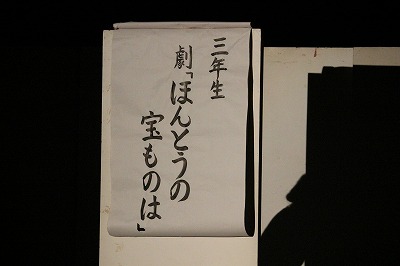 三年生
劇「ほんとうの
宝ものは」